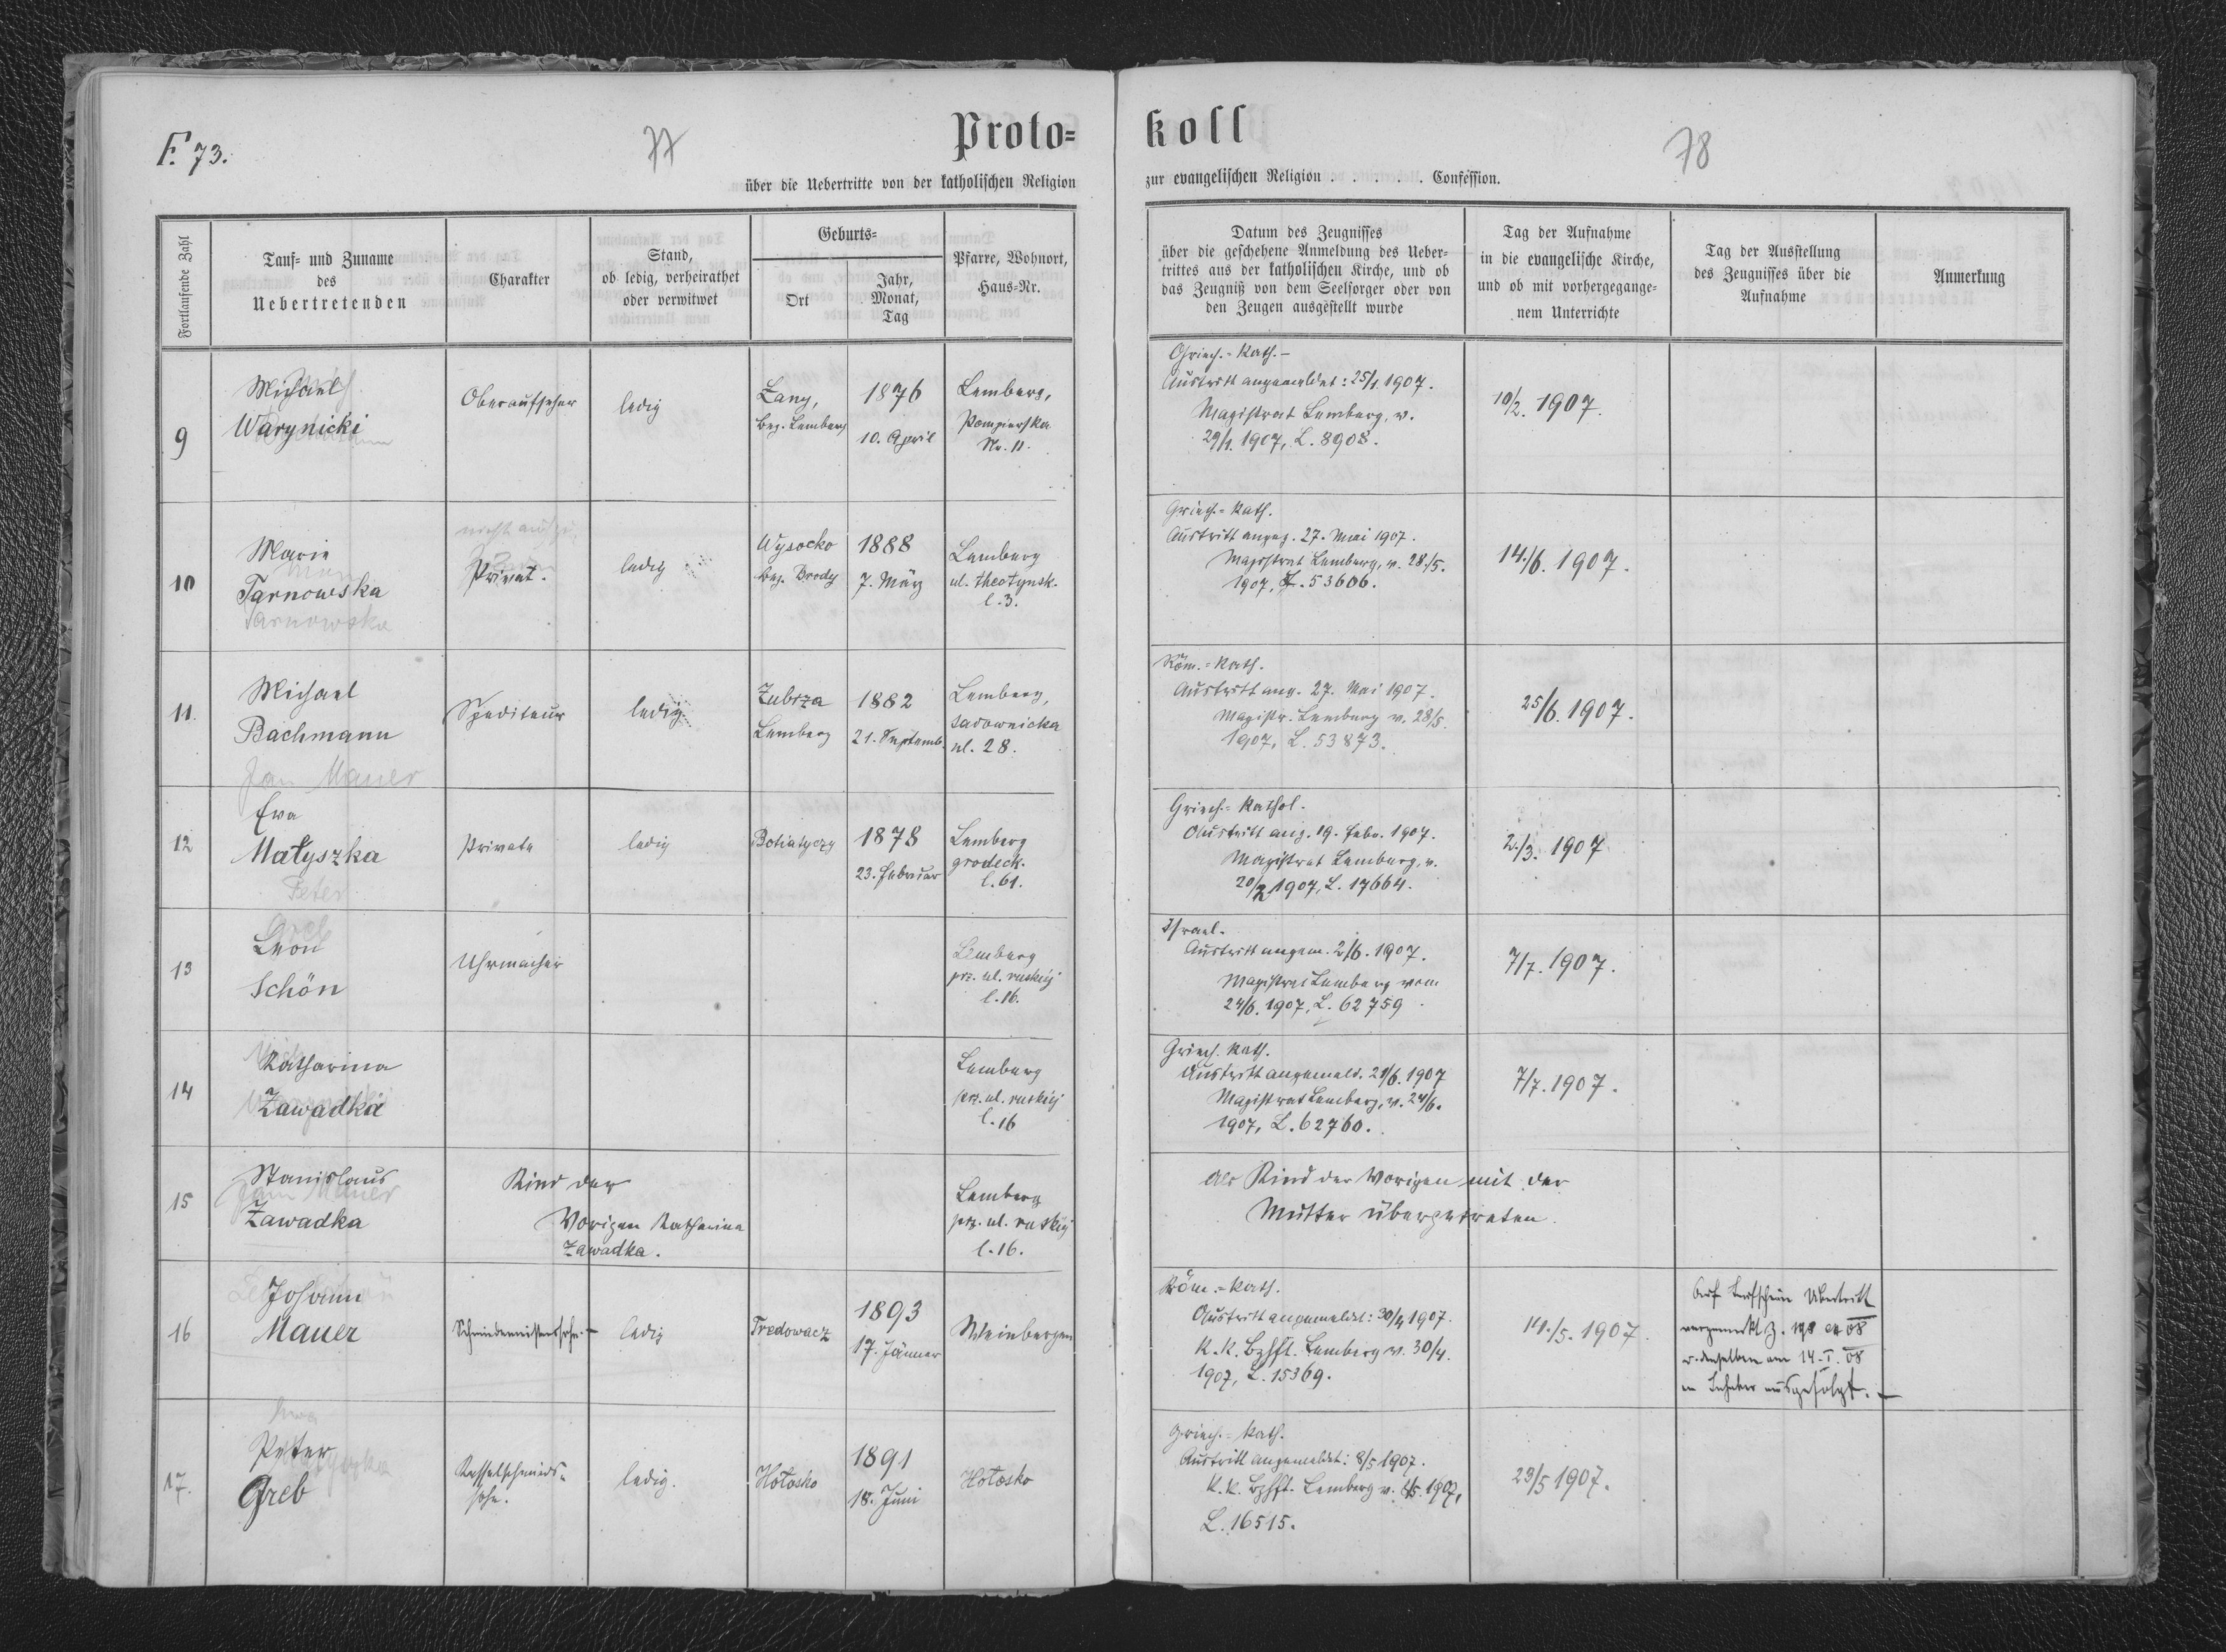 F. 73.
77
Proto=
koll
78
über die Uebertritte von der katholischen Religion
zur evangelischen Religion . . . . . . Confession.
Fortlaufende Zahl
Tauf= und Zuname
des
Uebertretenden
Charakter
Stand,
ob ledig, verheirathet
oder verwitwet
Geburts=
Ort
Jahr,
Monat,
Tag
Pfarre, Wohnort,
Haus=Nr.
Datum des Zeugnisses
über die geschehene Anmeldung des Ueber=
trittes aus der katholischen Kirche, und ob
das Zeugniß von dem Seelsorger oder von
den Zeugen ausgestellt wurde
Tag der Aufnahme
in die evangelische Kirche,
und ob mit vorhergegange=
nem Unterrichte
Tag der Ausstellung
des Zeugnisses über die
Aufnahme
Anmerkung
9
Michael
Warynicki
Oberaufseher
ledig
Łany,
Bez. Lemberg
1876
10. April
Lemberg,
Pompierska
Nr. 11.
Griech.=Kath.–
Austritt angemeldet: 25/1 1907.
Magistrat Lemberg, v.
29/1. 1907, L. 8908.
10/2. 1907.
10
Marie
Tarnowska
Tarnowska
Privat.
ledig
Wysocko
bez. Brody
1888
7. März
Lemberg
ul. theatynsk.
l. 3.
Griech.=Kath.
Austritt angez. 27. Mai 1907.
Magistrat Lemberg, v. 28./5.
1907, L. 53606.
14./6. 1907.
11.
Michael
Bachmann
Jan Mauer
Spediteur
ledig
Zubrza
Lemberg
1882
21. Septemb.
Lemberg,
Sadownicka
ul. 28.
Röm.=Kath.
Austritt ang. 27. Mai 1907.
Magistr. Lemberg v. 28/5.
1907, L. 53873.
25/6. 1907.
12
Eva
Matyszka
Peter
Private
ledig
Botiatyczy
1878
23. Februar
Lemberg
grodeck.
l. 61.
Griech.=Kathol.
Austritt ang. 19. Febr. 1907.
Magistrat Lemberg, v.
20/2 1907, L. 17664.
2./3. 1907
13
Greb
Leon
Schön
Uhrmacher
Lemberg
prz. ul. ruskiej
l. 16.
Israel.
Austritt angem. 2/6. 1907.
Magistrat Lemberg vom
24/6. 1907, L. 62759
7/7. 1907.
14
Katharina
Zawadka
Lemberg
prz. ul. ruskiej
l. 16
Griech. Kath.
Austritt angemeld. 21/6. 1907
Magistrat Lemberg, v. 24/6.
1907, L. 62760.
7/7. 1907.
15
Stanislaus
Jan Mauer
Zawadka
Kind der
Vorigen Katharina
Zawadka.
Lemberg
prz. ul. ruskiej
l. 16.
Als Kind der Vorigen mit der
Mutter übergetreten.
16
Johann
Mauer
Schmiedemeisterssohn.–
ledig
Tredowacz
1893
17. Jänner
Weinbergen
Röm.=Kath.
Austritt angemeldet: 30/4 1907.
K. K. Bzhft. Lemberg v. 30/4.
1907, L. 15369.
14./5. 1907.
Auf Taufschein Übertritt
angemerkt Z. 198 ex 08
u. denselben am 14. I. 08
ausgefolgt. –
17.
Peter
Greb
Kesselschmieds=
sohn.
ledig.
Hołosko
1891
18. Juni
Hołosko
Griech.=Kath.
Austritt angemeldet: 8/5 1907.
K. K. Bzhft. Lemberg v. 8/5. 1907,
L. 16515.
23/5 1907.